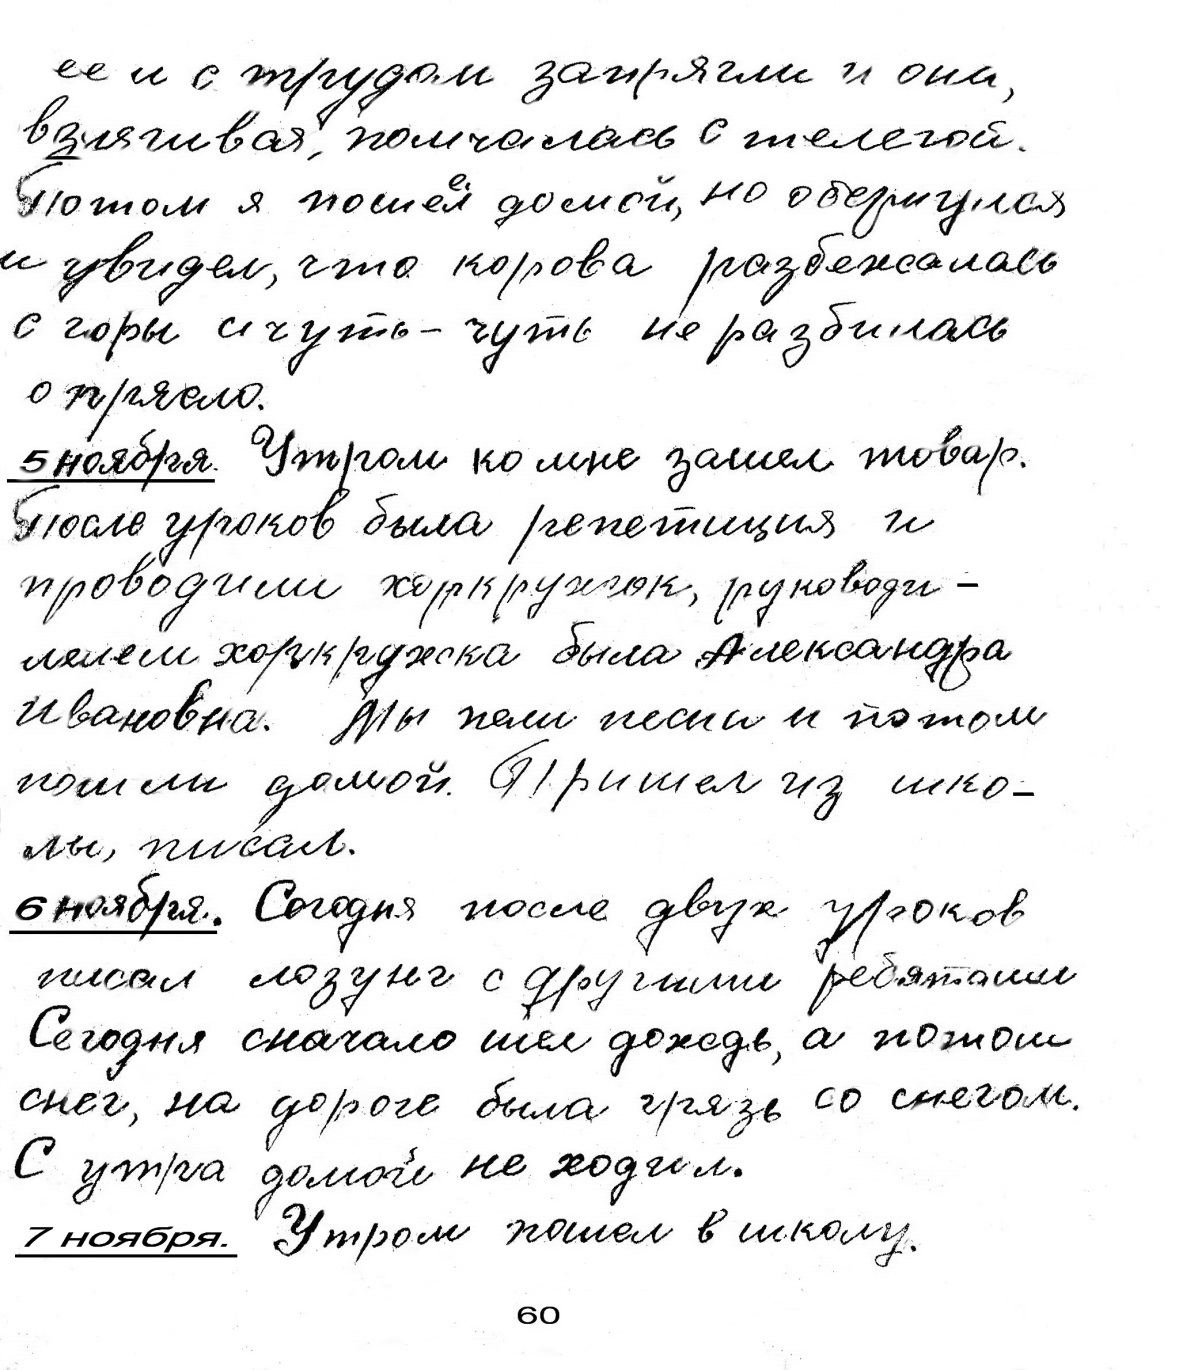 ее и с трудом запрягли и она,
взлягивая, помчалась с телегой.
Потом я пошёл домой, но обернулся
и увидел, что корова разбежалась
с горы и чуть-чуть не разбилась
о прясло.
5 ноября. Утром ко мне зашел товар.
После уроков была репетиция и
проводили хоркружок, руководи-
телем хоркружска была Александра
Ивановна. Мы пели песни и потом
пошли домой. Пришел из шко-
лы, писал.
6 ноября. Сегодня после двух уроков
писал лозунг с другими ребятами
Сегодня сначало шел дождь, а потом
снег, на дороге была грязь со снегом.
С утра домой не ходил.
7 ноября. Утром пошел в школу.
60